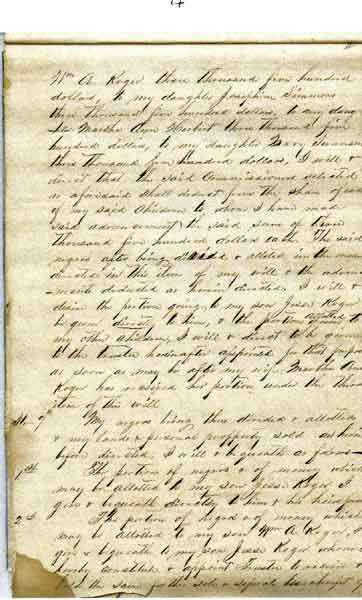 Wm A. Koger three thousand five hundred
dollars, to my daughter Josephine Simmons
three thousand five hundred dollars, to my daugh
-ter Martha Ann Herbert three thousand five
hundred dollars, to my daughter Mary Swanson
three thousand five hundred dollars, I will &
direct that the said Commissioners selected
as aforesaid shall deduct from the share of each
of my said Children to whom I have made
said advancement the said sum of three
thousand five hundred dollars each. The said
negroes after being divided & allotted in the man
directed in this item of my will & the advance
-ments deducted as herein divided. I will &
desire the portion going to my son Jesse Koger
be given direct to him, & the portion allotted to
my other children, I will & direct to be given
to the trustee hereinafter appointed for that purp
as soon as may be after my wife Martha Ann
Koger has received her portion under the third
item of this will
My negroes being thus divided & allotted
& my lands & personal property sold as herein
before directed, I will & bequeath as follows—
1st The portion of negroes & of money which
may be allotted to my son Jesse Koger I
give & bequeath directly to him & his heirs
2d The portion of negroes & of money which
may be allotted to my son Wm A Koger, I
give & bequeath to my son Jesse Koger whom
hereby constitute & appoint Trustee to receive
hold the same for the sole & separate use